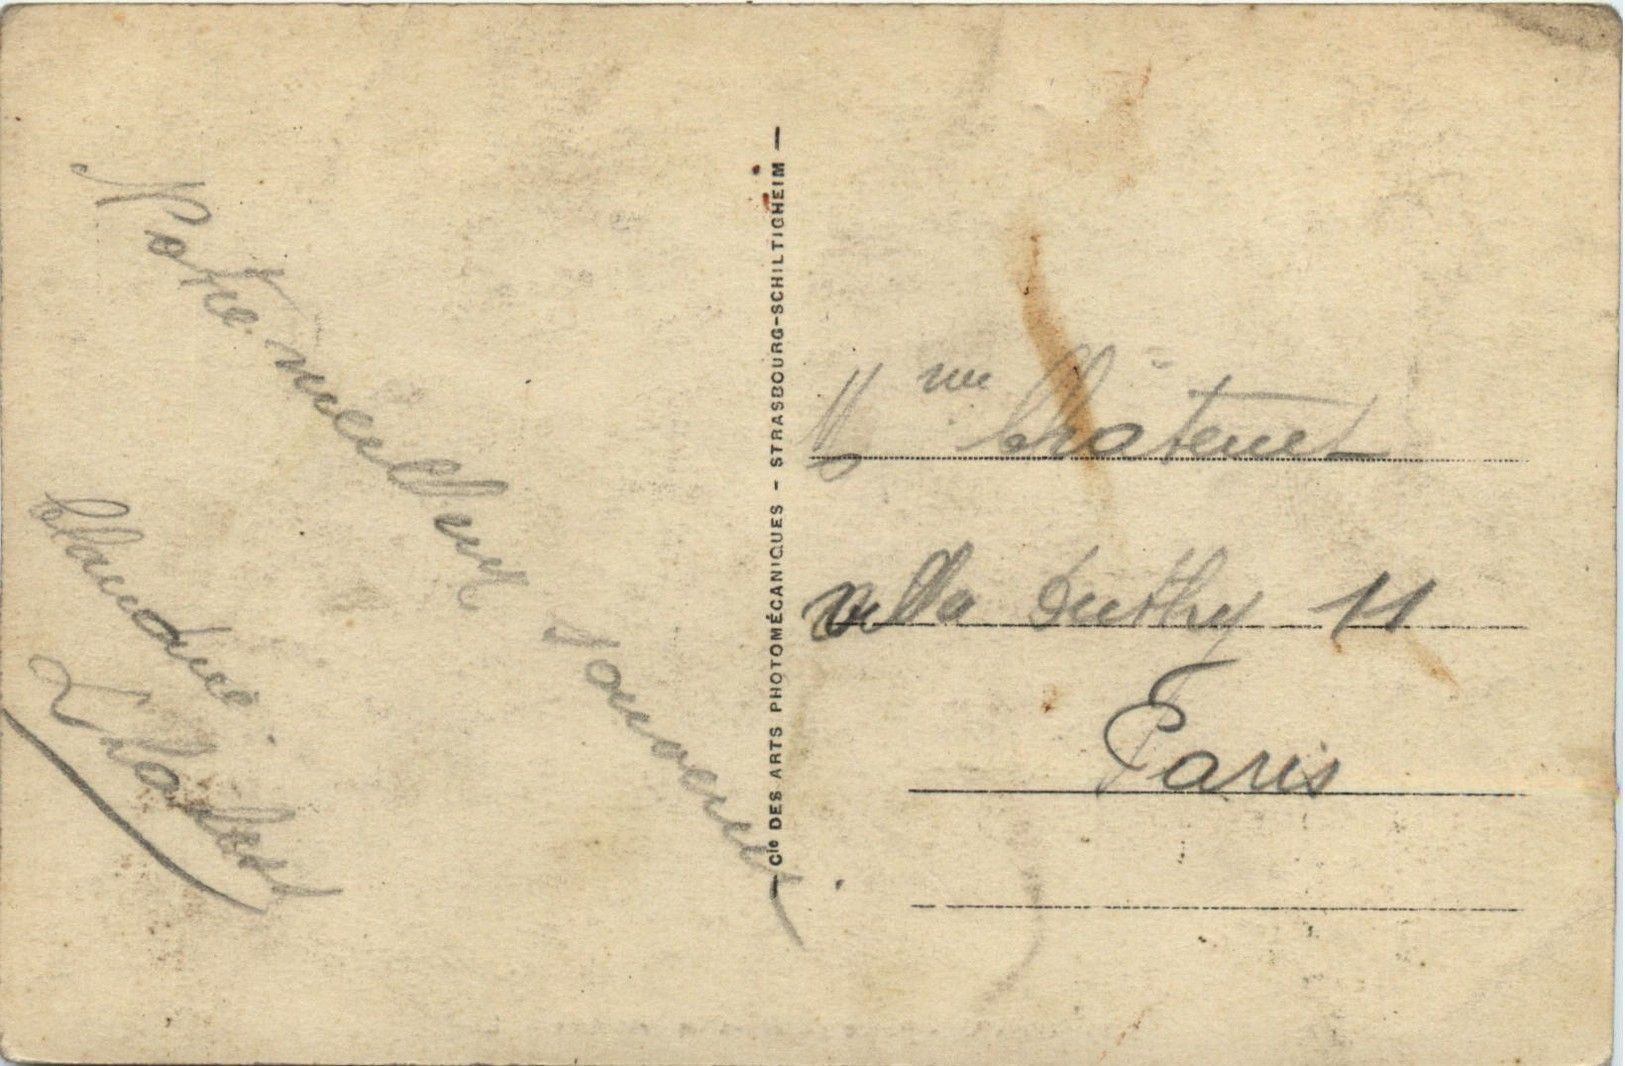 Notre meilleur souvenir
Claudine
Cie DES ARTS PHOTOMÉCANIQUES - STRASBOURG-SCHILTIGHEIM
Mme Châtenet
villa 11
Paris